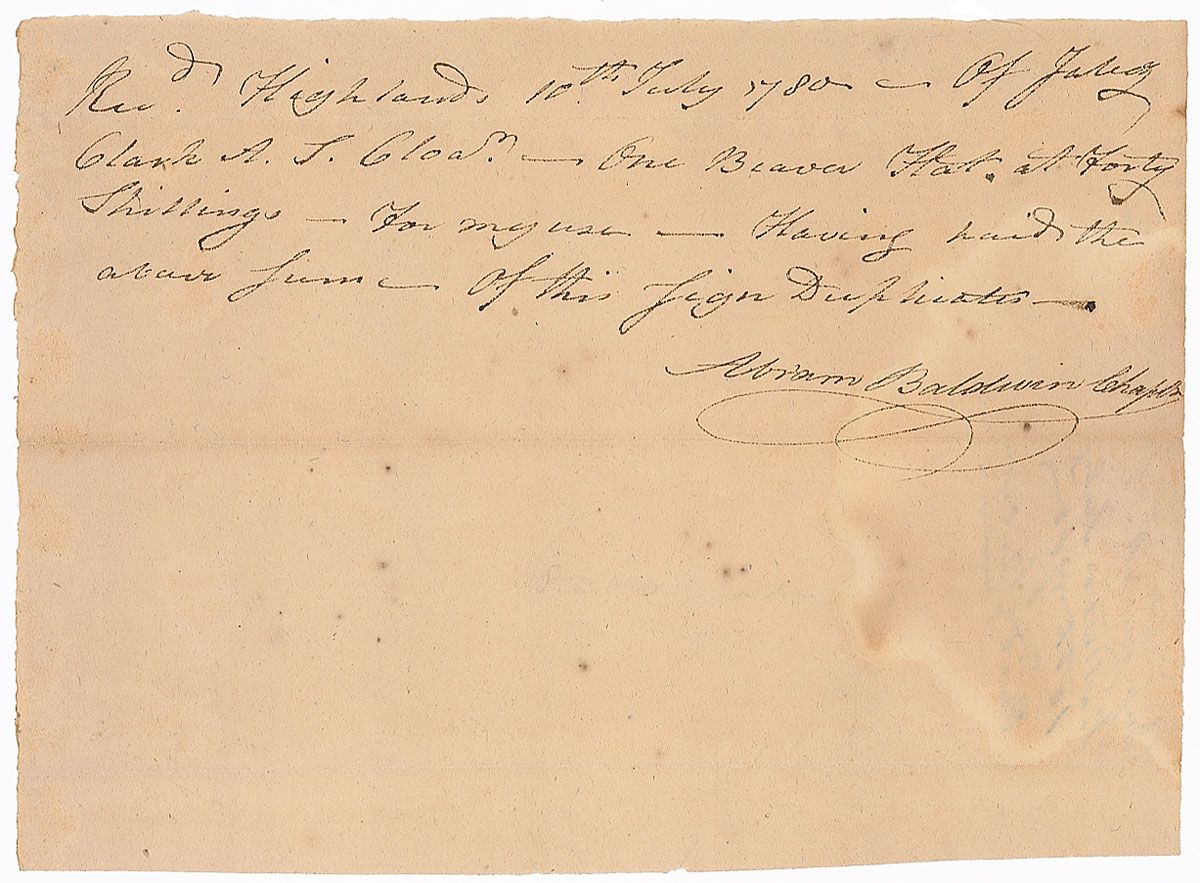 Recd. Highlands 10th July 1780 — Of Jabez
Clark A. S. Cloan. — One Beaver Hat. at Forty
Shillings — For my use — Having paid the
above Sum — Of this sign Duplicates —.
Abram Baldwin Chapln